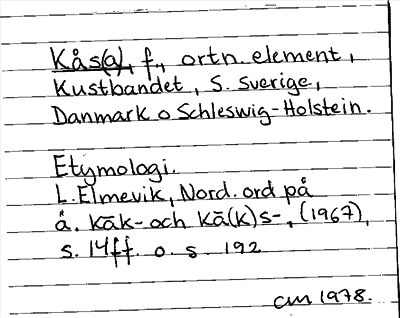 Kås(a), f., ortn. element,
Kustbandet, S. Sverige,
Danmark o Schleswig-Holstein.
Etymologi.
L. Elmevik, Nord. ord på
å. kāk- och kā(k)s-, (1967),
s. 14ff. o. s. 192
CM 1978.